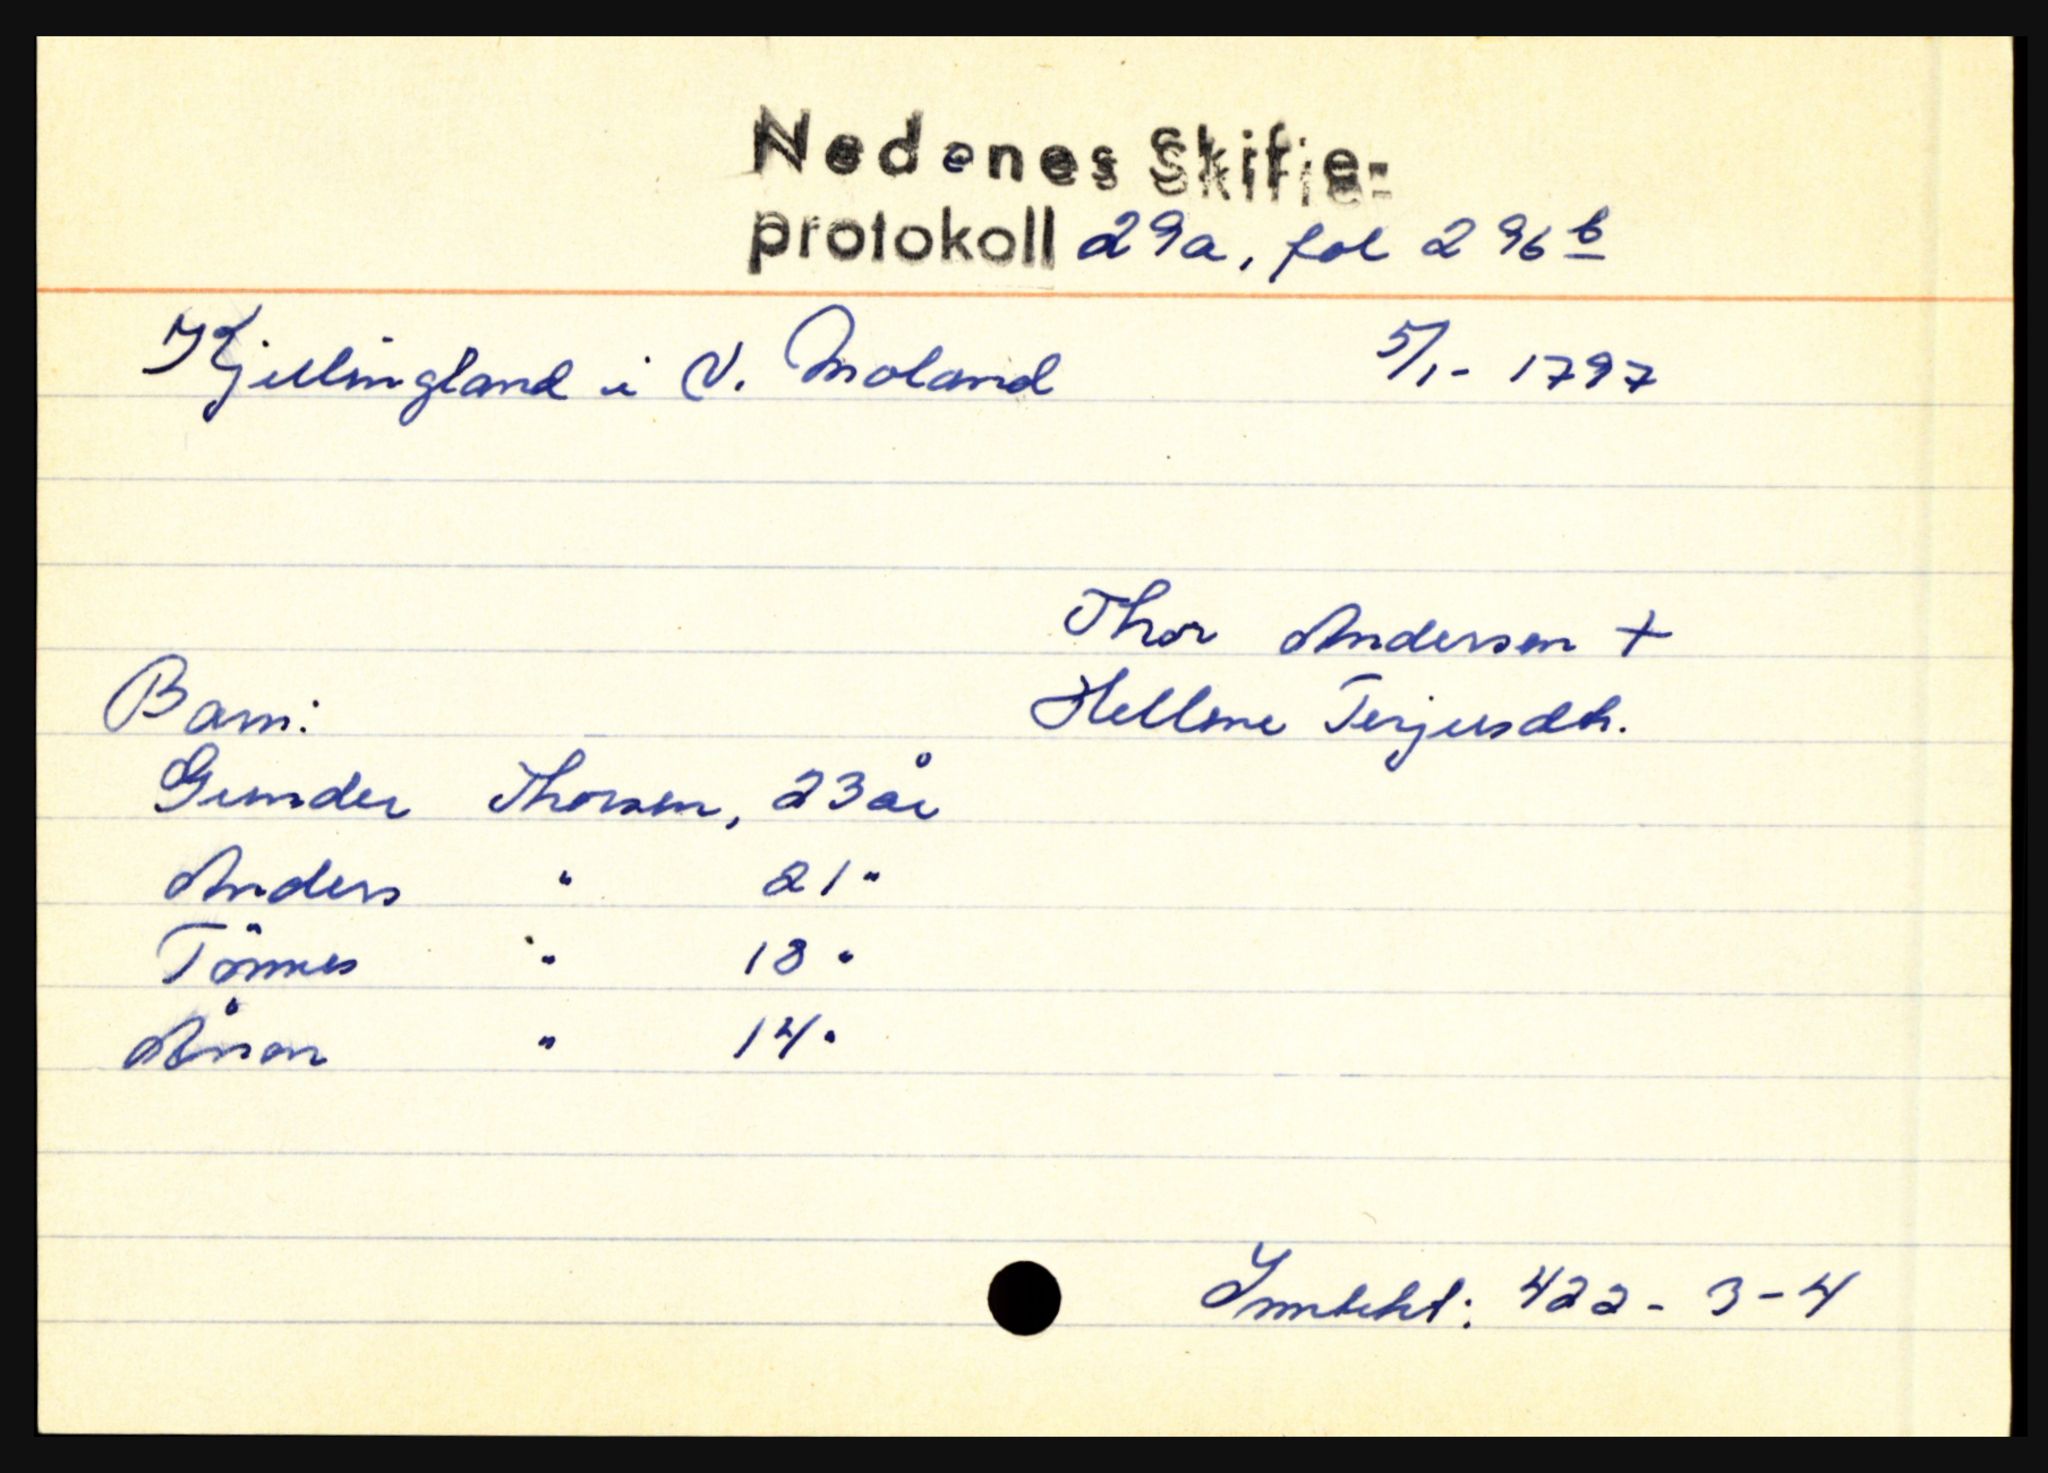 Nedenes Skifte-
protokoll 29a, fol 296 b
Kjellingland i V. Moland 5/1- 1797
Thor Andersen +
Barn: Hellene Terjusdtr.
Gunder Thorsen, 23 år
Anders " 21 "
Tönnes " 18 "
Ånon " 14 "
Inntekt: 422 - 3 - 4